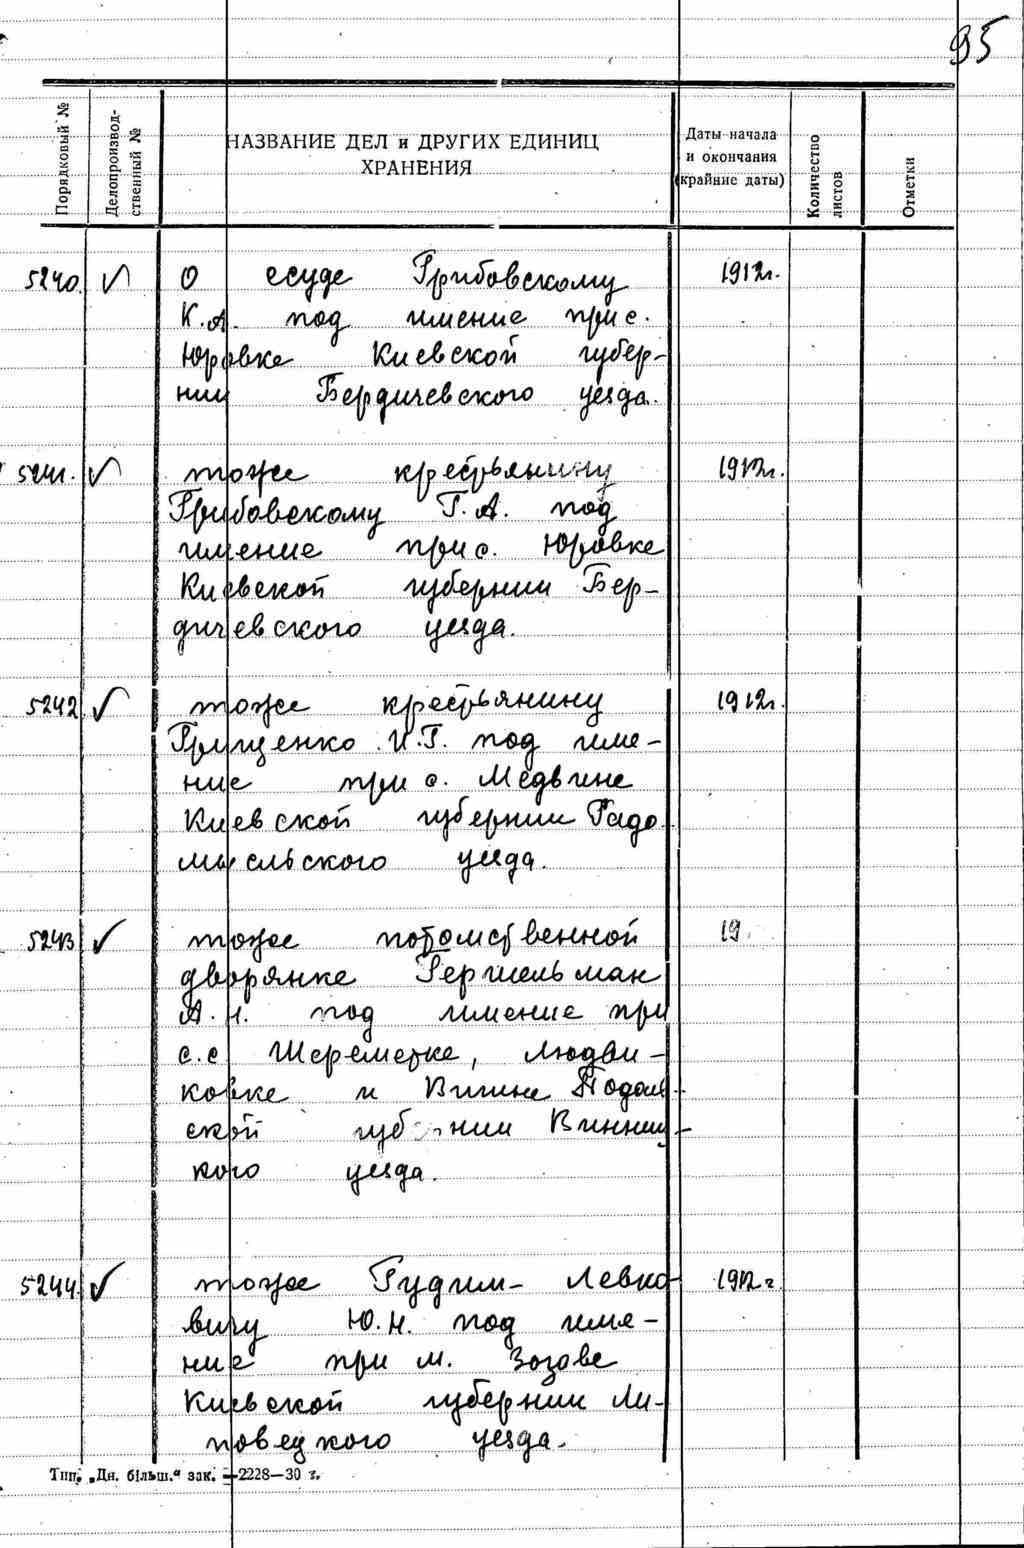 95
Порядковый №
Делопроизвод-
ственный №
НАЗВАНИЕ ДЕЛ и ДРУГИХ ЕДИНИЦ
ХРАНЕНИЯ
Даты начала
и окончания
(крайние даты)
Количество
листов
Отметки
5240. О ссуде Грибовскому 1912г.
К.А. под имение при с.
Юровке Киевской губер-
нии Бердичевского уезда.
5241. тоже крестьянину 1912г.
Грибовскому Г.А. под
имение при с. Юровке
Киевской губернии Бер-
дичевского уезда.
5242 тоже крестьянину 1912г.
Грищенко И.Г. под име-
ние при с. Медвине
Киевской губернии Радо
мысльского уезда.
5243 тоже потомственной 19
дворянке Гершельман
А.Н. под имение при
с.с Шереметке, Людви-
ковке и Витине Подоль-
ской губернии Винниц-
кого уезда.
5244. тоже Рудим- Левко- 1912г
вичу Ю.Н. под име-
ние при м. Зозове
Киевской губернии Ли-
повецкого уезда.
Тип. „Дн. більш.“ зак. —2228—30 г.